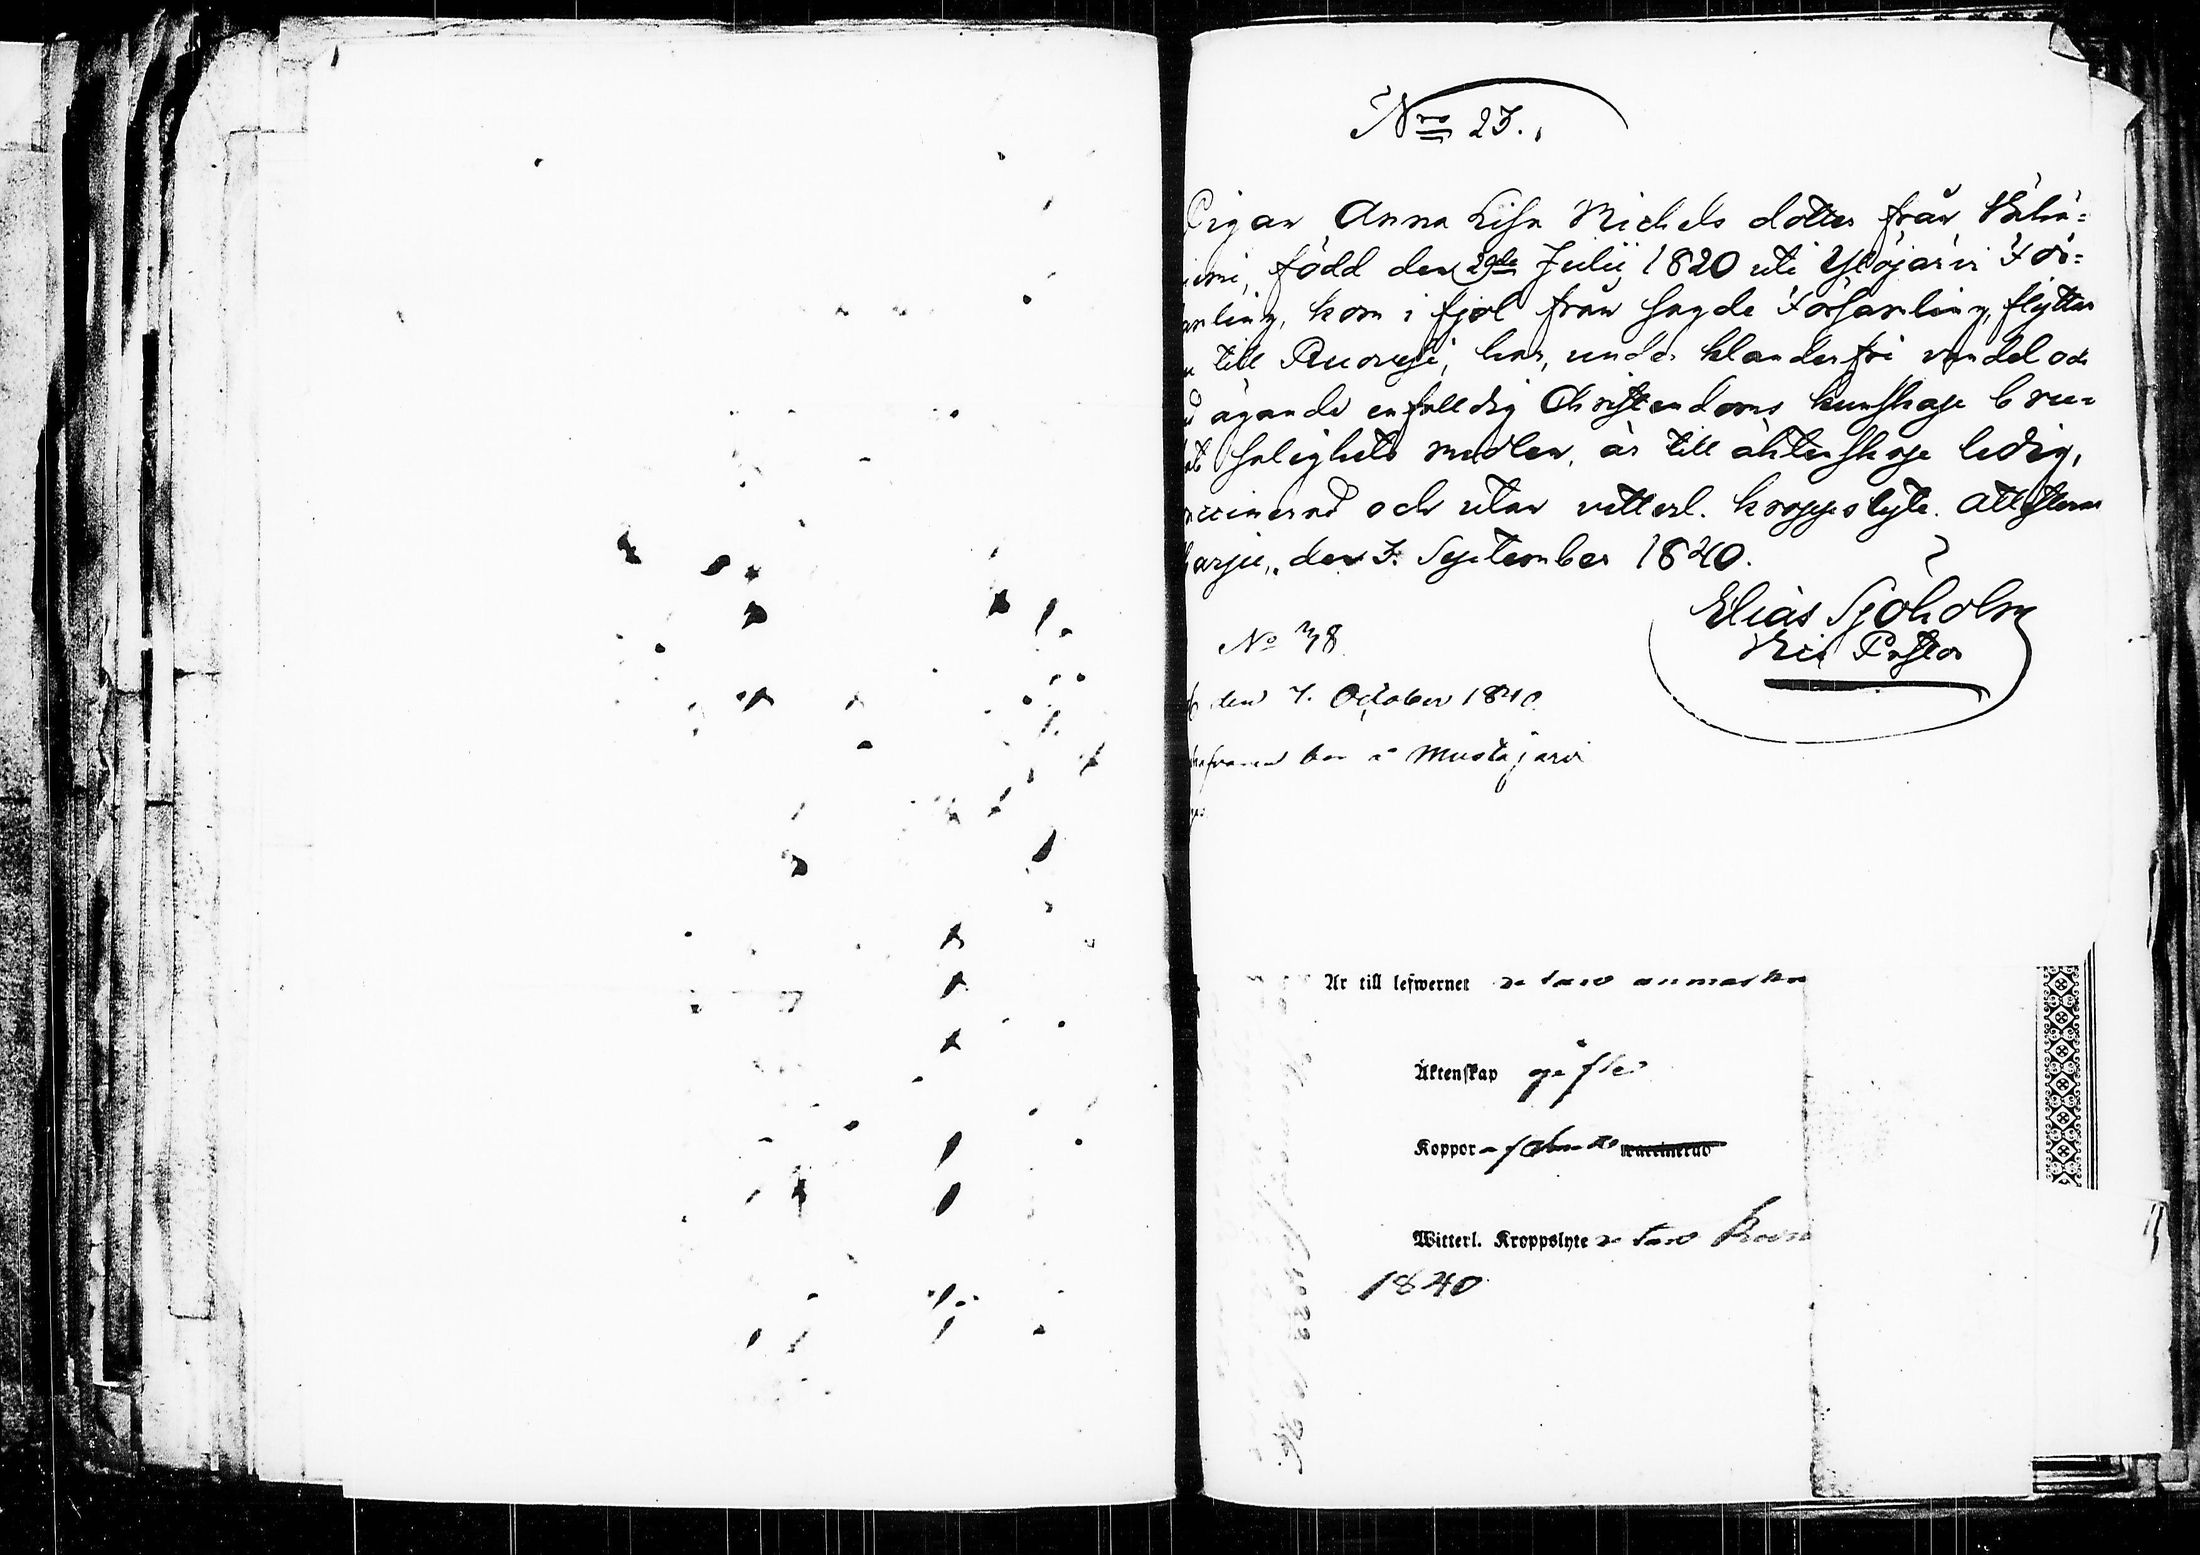 Nro 23.
Pigan Anna Lisa Michels dotter från
född den 29de Julii 1820 uti Ylöjärvi För=
samling, kom i fjol från sagde Församling, flyttar
till Ruovesi, har, under klanderfri vandel och
ägande enfalldig Christendoms kunskap bru=
kat salighets medlen, är till äktenskap ledig,
vaccinerad och utan vitterl. kroppslyte. Attesterar
harju, den 3. September 1840.
Elias Sjöholm
Vice Pastor
No 38
den 7. October 1840
å Mustajärvi
Är till lefwernet utan anmärkn
Äktenskap gifte
Koppor vaccinerad
Witterl. Kroppslyte utan
1840